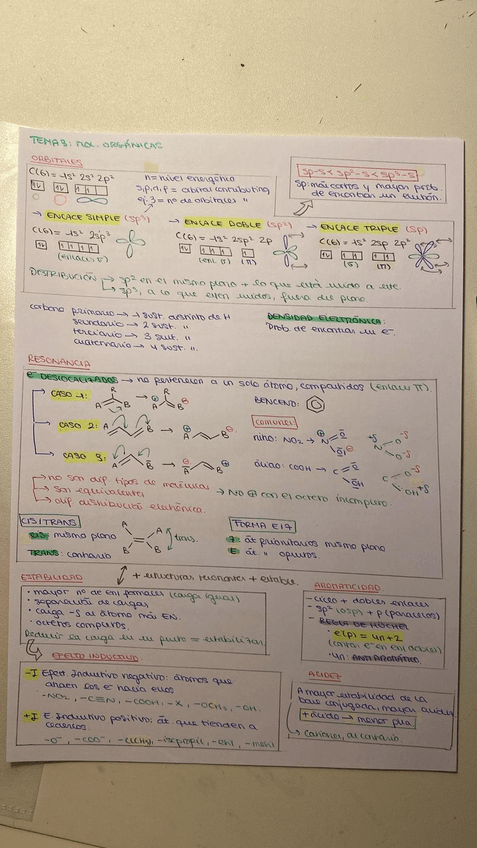 TEMA 3: MOL. ORGÁNICAS
ORBITALES
C(6) = 1s² 2s² 2p²
n = nivel energético
s, p, d, f = orbital
ej: 3 = nº de orbitales "
sp-s < sp²-s < sp³-s
sp: más cortos y mayor prob.
de encontrar un electrón.
→ ENLACE SIMPLE (sp³)
C(6) = 1s² 2sp³
(enlaces σ)
→ ENLACE DOBLE (sp²)
C(6) = 1s² 2sp² 2p
(enl. σ) (π)
→ ENLACE TRIPLE (sp)
C(6) = 1s² 2sp 2p²
(σ) (π)
DISTRIBUCIÓN → sp² en el mismo plano + lo que está unido a este.
→ sp³, a lo que estén unidos, fuera del plano.
carbono primario → 1 sust. distinto de H
secundario → 2 sust. "
terciario → 3 sust. "
cuaternario → 4 sust. "
DENSIDAD ELECTRÓNICA:
Prob. de encontrar un e⁻.
RESONANCIA
e⁻ DESLOCALIZADOS → no pertenecen a un solo átomo, compartidos (enlaces π).
CASO 1:
R
A B
R
A B
BENCENO:
CASO 2:
A B
A B
comunes
nitro: NO₂ →
CASO 3:
A B
A B
ácido: COOH →
→ no son dif. tipos de moléculas
→ son equivalentes
→ dif. distribución electrónica.
→ No ⊕ con el octeto incompleto.
CIS/TRANS
CIS: mismo plano
TRANS: contrario
A A
B B
trans.
FORMA E/Z
Z át. prioritarios mismo plano
E át. " opuestos.
+ estructuras resonantes + estable.
ESTABILIDAD
• mayor nº de enl. formales (carga igual)
• separación de cargas
• carga -δ al átomo más EN.
• octetos completos.
Deducir la carga en un punto = estabilizar
AROMATICIDAD
- ciclo + dobles enlaces
- sp² (o sp) + p (paralelos)
- REGLA DE HÜCKEL
• e(p) = 4n+2
• 4n: ANTIAROMÁTICO.
EFECTO INDUCTIVO
-I Efect. Inductivo negativo: átomos que
atraen los e⁻ hacia ellos
-NO₂, -C≡N, -COOH, -X, -OCH₃, -OH.
+I E. Inductivo positivo: át. que tienden a
cederlos.
-O⁻, -COO⁻, -C(CH₃)₃, -isopropil, -etil, -metil
ACIDEZ
A mayor estabilidad de la
base conjugada, mayor acidez
+ ácido → menor pKa
→ cationes, al contrario